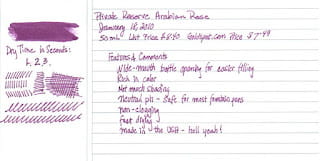 Private Reserve Arabian Rose
January 18, 2010
50 mL List Price $8.40 Goldspot.com Price $7.49
Dry Time in Seconds:
1. 2. 3.
Features & Comments
Wide-mouth bottle opening for easier filling
Rich in color
Not much shading
Neutral pH - Safe for most fountain pens
non-clogging
Fast drying
made in the USA - hell yeah!